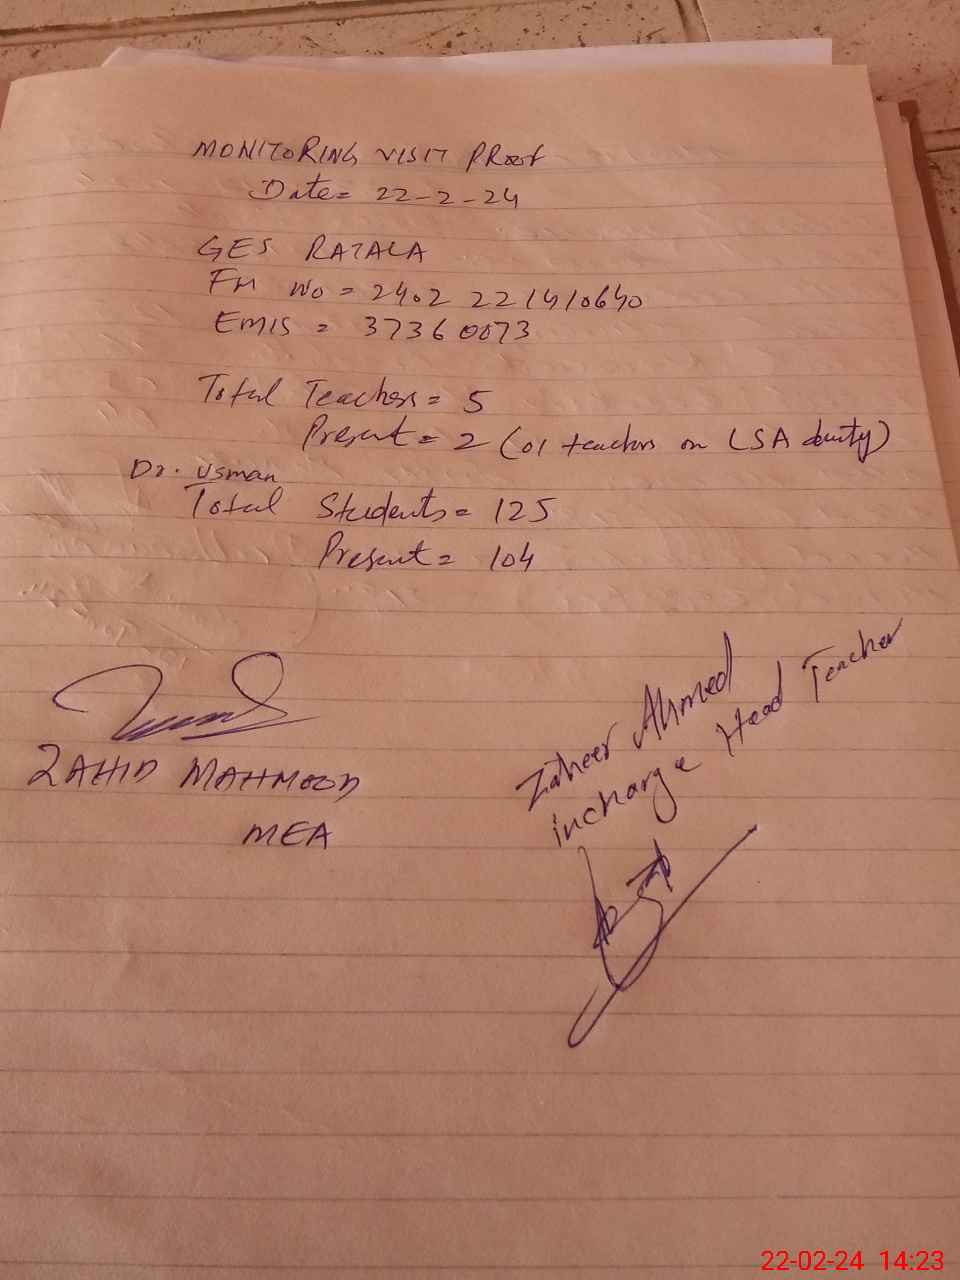 MONITORING VISIT PROOF
Date= 22-2-24
GES RATALA
FM NO = 2402 221410640
EMIS = 37360073
Total Teachers = 5
Present = 2 (01 teachers on LSA duty)
Dr. Usman
Total Students = 125
Present = 104
ZAHID MAHMOOD
MEA
Zaheer Ahmed
incharge Head Teacher
22-02-24 14:23